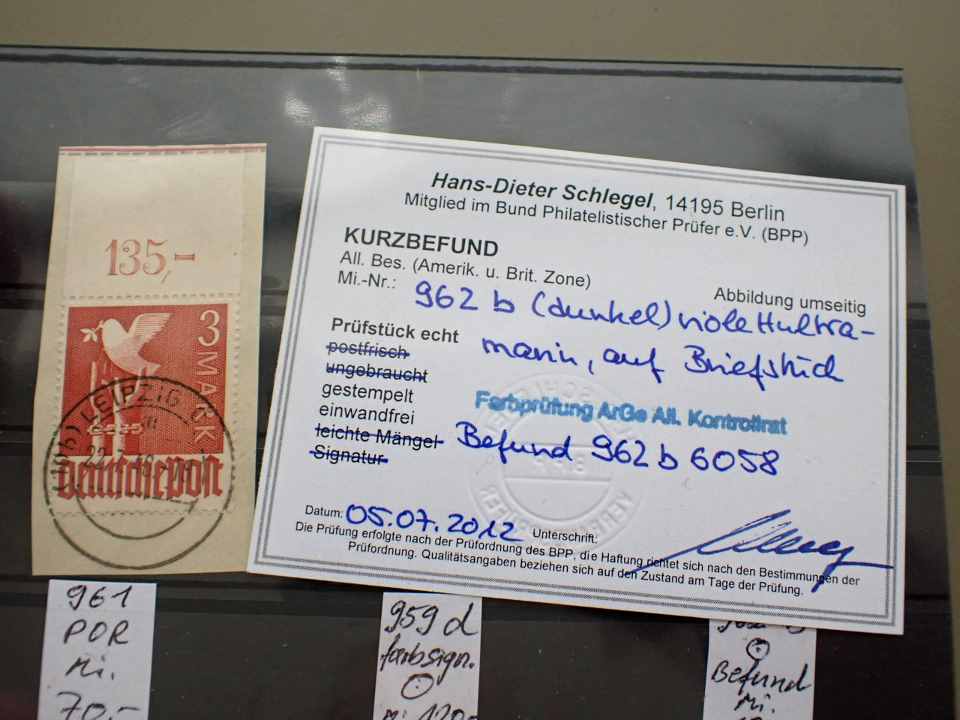 135,-
3
MARK
LEIPZIG
deutsche post
Hans-Dieter Schlegel, 14195 Berlin
Mitglied im Bund Philatelistischer Prüfer e.V. (BPP)
KURZBEFUND
All. Bes. (Amerik. u. Brit. Zone)
Abbildung umseitig
Mi.-Nr.: 962 b (dunkel)violettultra-
marin, auf Briefstück
Prüfstück echt
postfrisch
ungebraucht
gestempelt
einwandfrei
leichte Mängel
Signatur
Farbprüfung ArGe All. Kontrollrat
Befund 962 b 6058
Datum: 05.07.2012 Unterschrift:
Die Prüfung erfolgte nach der Prüfordnung des BPP, die Haftung richtet sich nach den Bestimmungen der
Prüfordnung. Qualitätsangaben beziehen sich auf den Zustand am Tage der Prüfung.
961
POR
Mi.
70,-
959 d
farbsign.
Mi. 120,-
Befund
Mi.